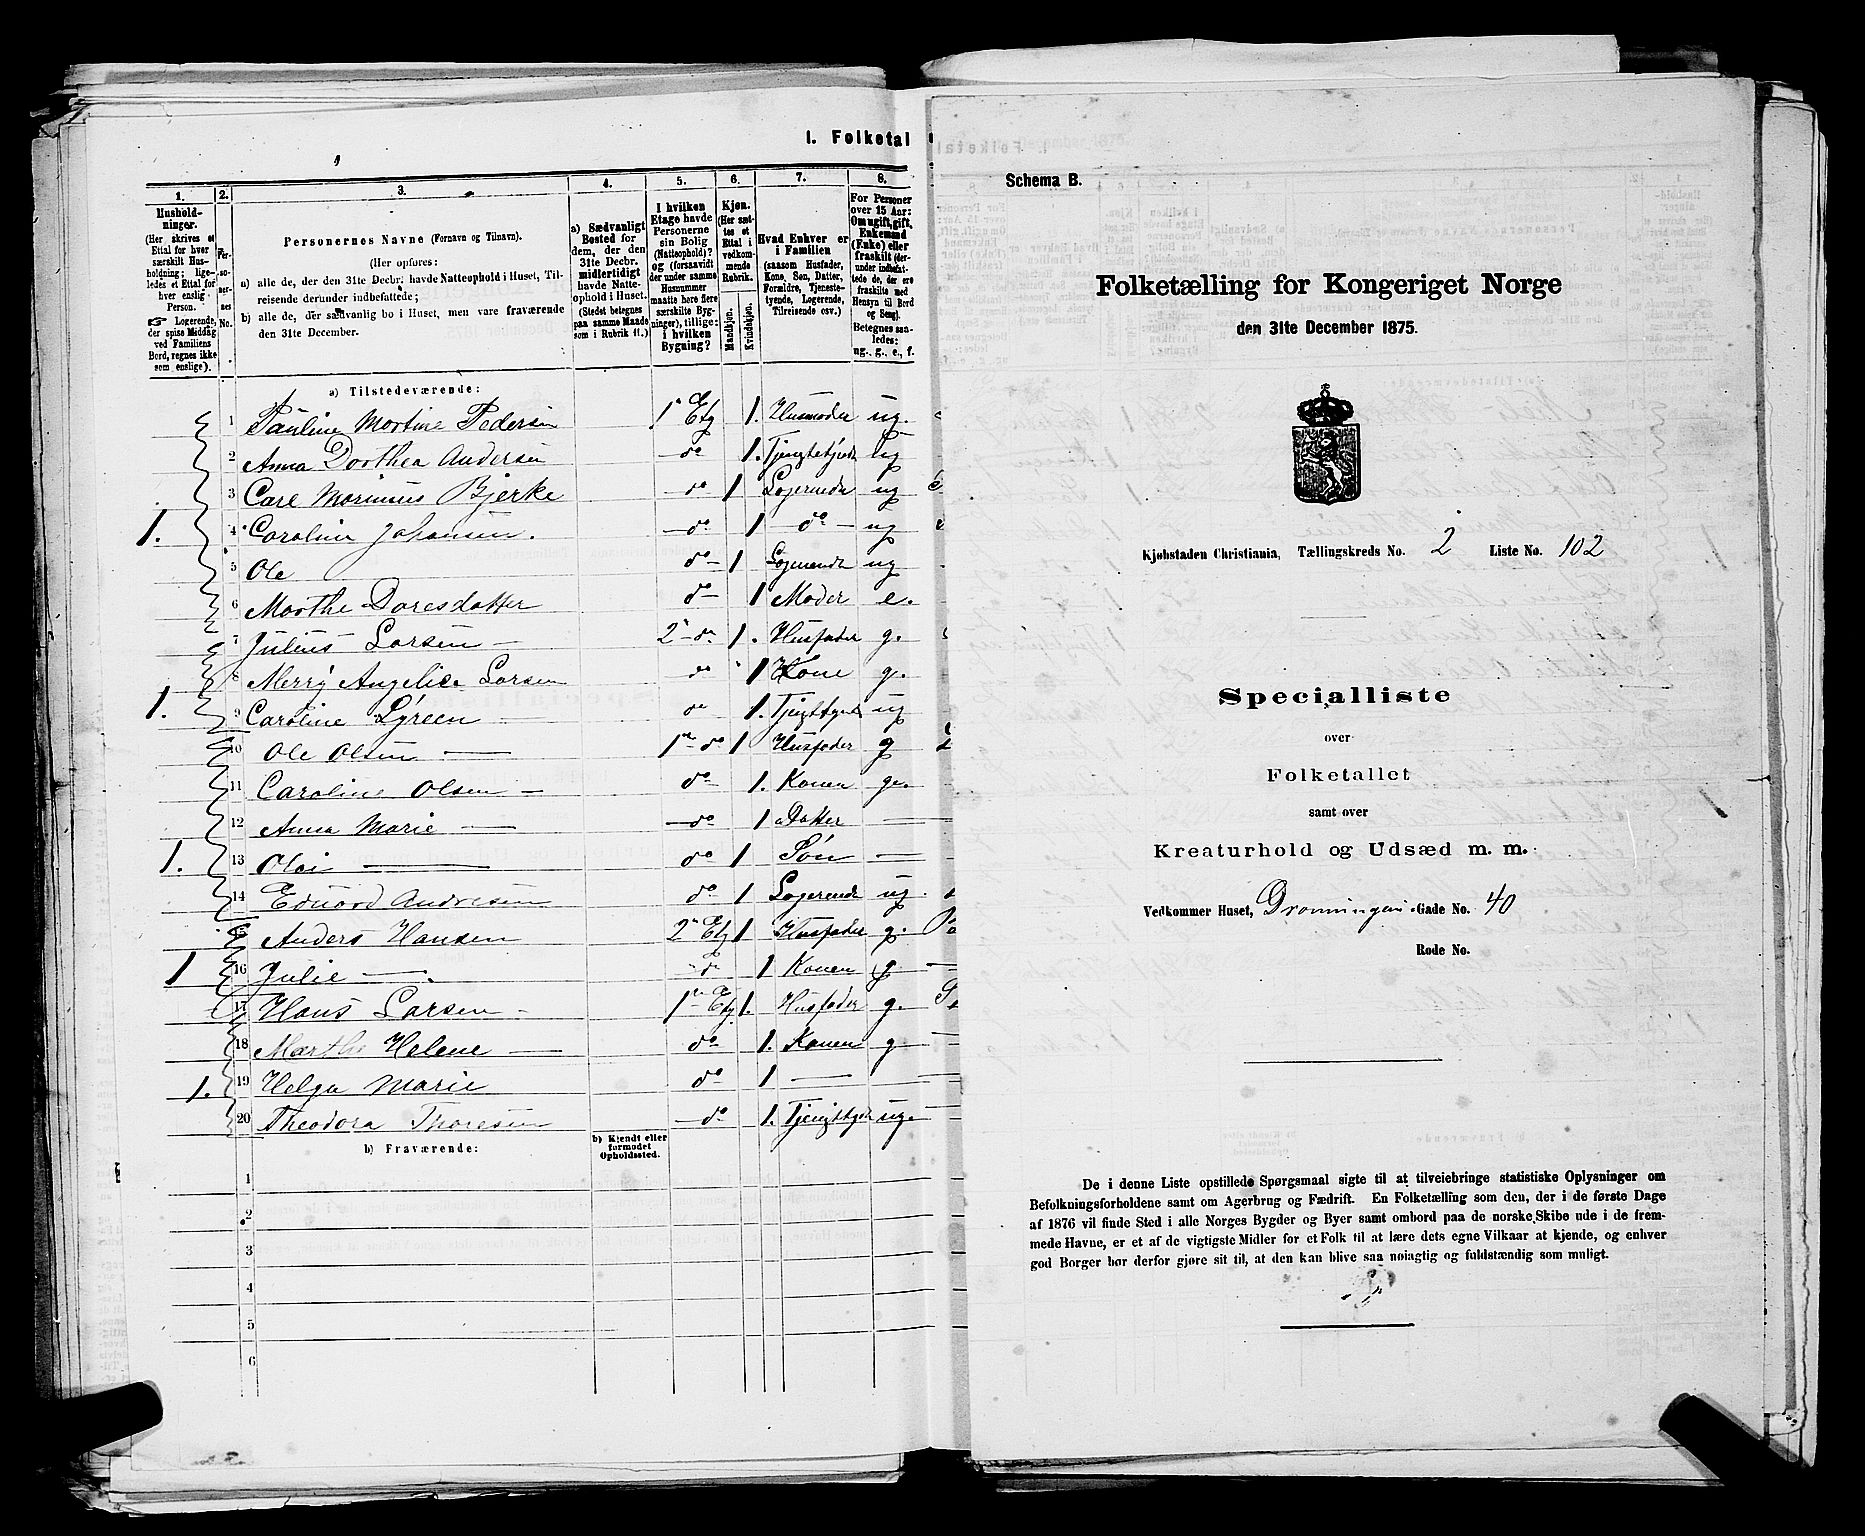 I. Folketal
1.
Hushold-
ninger.
(Her skrives et
Ettal for hver
særskilt Hus-
holdning; lige-
ledes et Ettal for
hver enslig
Person.
☞ Logerende,
der spise Middag
ved Familiens
Bord, regnes ikke
som enslige).
2.
Per-
so-
ner-
nes
No.
3.
Personernes Navne (Fornavn og Tilnavn).
(Her opføres:
a) alle de, der den 31te Decbr. havde Natteophold i Huset, Til-
reisende derunder indbefattede;
b) alle de, der sædvanlig bo i Huset, men vare fraværende
den 31te December.
4.
a) Sædvanligt
Bosted for
dem, der den
31te Decbr.
midlertidigt
havde Natte-
ophold i Huset.
(Stedet betegnes
paa samme Maade
som i Rubrik 11.)
5.
I hvilken
Etage havde
Personerne
sin Bolig
(Natteophold)?
og (forsaavidt
der under samme
Husnummer
maatte høre flere
særskilte Byg-
ninger), tillige:
i hvilken
Bygning?
6.
Kjøn.
(Her sæt-
tes et
Ettal i
vedkom-
mende
Rubrik.
Mandkjøn.
Kvindekjøn.
7.
Hvad Enhver er
i Familien
(saasom Husfader,
Kone, Søn, Datter,
Forældre, Tjeneste-
tyende, Logerende,
Tilreisende osv.)
8.
For Personer
over 15 Aar:
Om ugift, gift,
Enkemand
(Enke) eller
fraskilt (der-
under indbefat-
tede de, der ere
fraskilte med
Hensyn til Bord
og Seng).
Betegnes saa-
ledes:
ug., g., e., f.
a) Tilstedeværende:
1 Pauline Martine Pedersen 1 Etg 1. Husmoder ug.
2 Anna Dorthea Andersen do 1. ug
3 Carl Marinius Bjerke do 1 Logerende ug
1. 4 Caroline Johansen. do 1 do ug
5 Ole do 1 Logerende ug
6 Marthe Larsdatter do 1 Moder e.
7 Julius Larsen 2 do 1. Husfader g.
8 Merry Angelica Larsen do 1 Kone g.
1. 9 Caroline Lyreen do 1. ug
10 Ole Olsen 1 do 1 Husfader g
11 Caroline Olsen do 1. Konen g.
12 Anna Marie do 1 Datter
1. 13 Olai do 1 Søn
14 Eduard Andresen do 1 Logerende ug.
15 Anders Hansen 2 Etg 1 Husfader g.
1 16 Julie do 1 Konen g.
17 Hans Larsen 1 Etg 1. Husfader g.
18 Marthe Helene do 1. Konen g
1. 19 Helga Marie do 1
20 Theodora Thoresen do 1. ug.
b) Fraværende:
b) Kjendt eller
formodet
Opholdssted.
1
2
3
4
5
6
Schema B.
Folketælling for Kongeriget Norge
den 31te December 1875.
Kjøbstaden Christiania, Tællingskreds No. 2 Liste No. 102
Specialliste
over
Folketallet
samt over
Kreaturhold og Udsæd m. m.
Vedkommer Huset, Dronningens Gade No. 40
Rode No.
De i denne Liste opstillede Spørgsmaal sigte til at tilveiebringe statistiske Oplysninger om
Befolkningsforholdene samt om Agerbrug og Fædrift. En Folketælling som den, der i de første Dage
af 1876 vil finde Sted i alle Norges Bygder og Byer samt ombord paa de norske Skibe ude i de frem-
mede Havne, er et af de vigtigste Midler for et Folk til at lære dets egne Vilkaar at kjende, og enhver
god Borger bør derfor gjøre sit til, at den kan blive saa nøiagtig og fuldstændig som muligt.